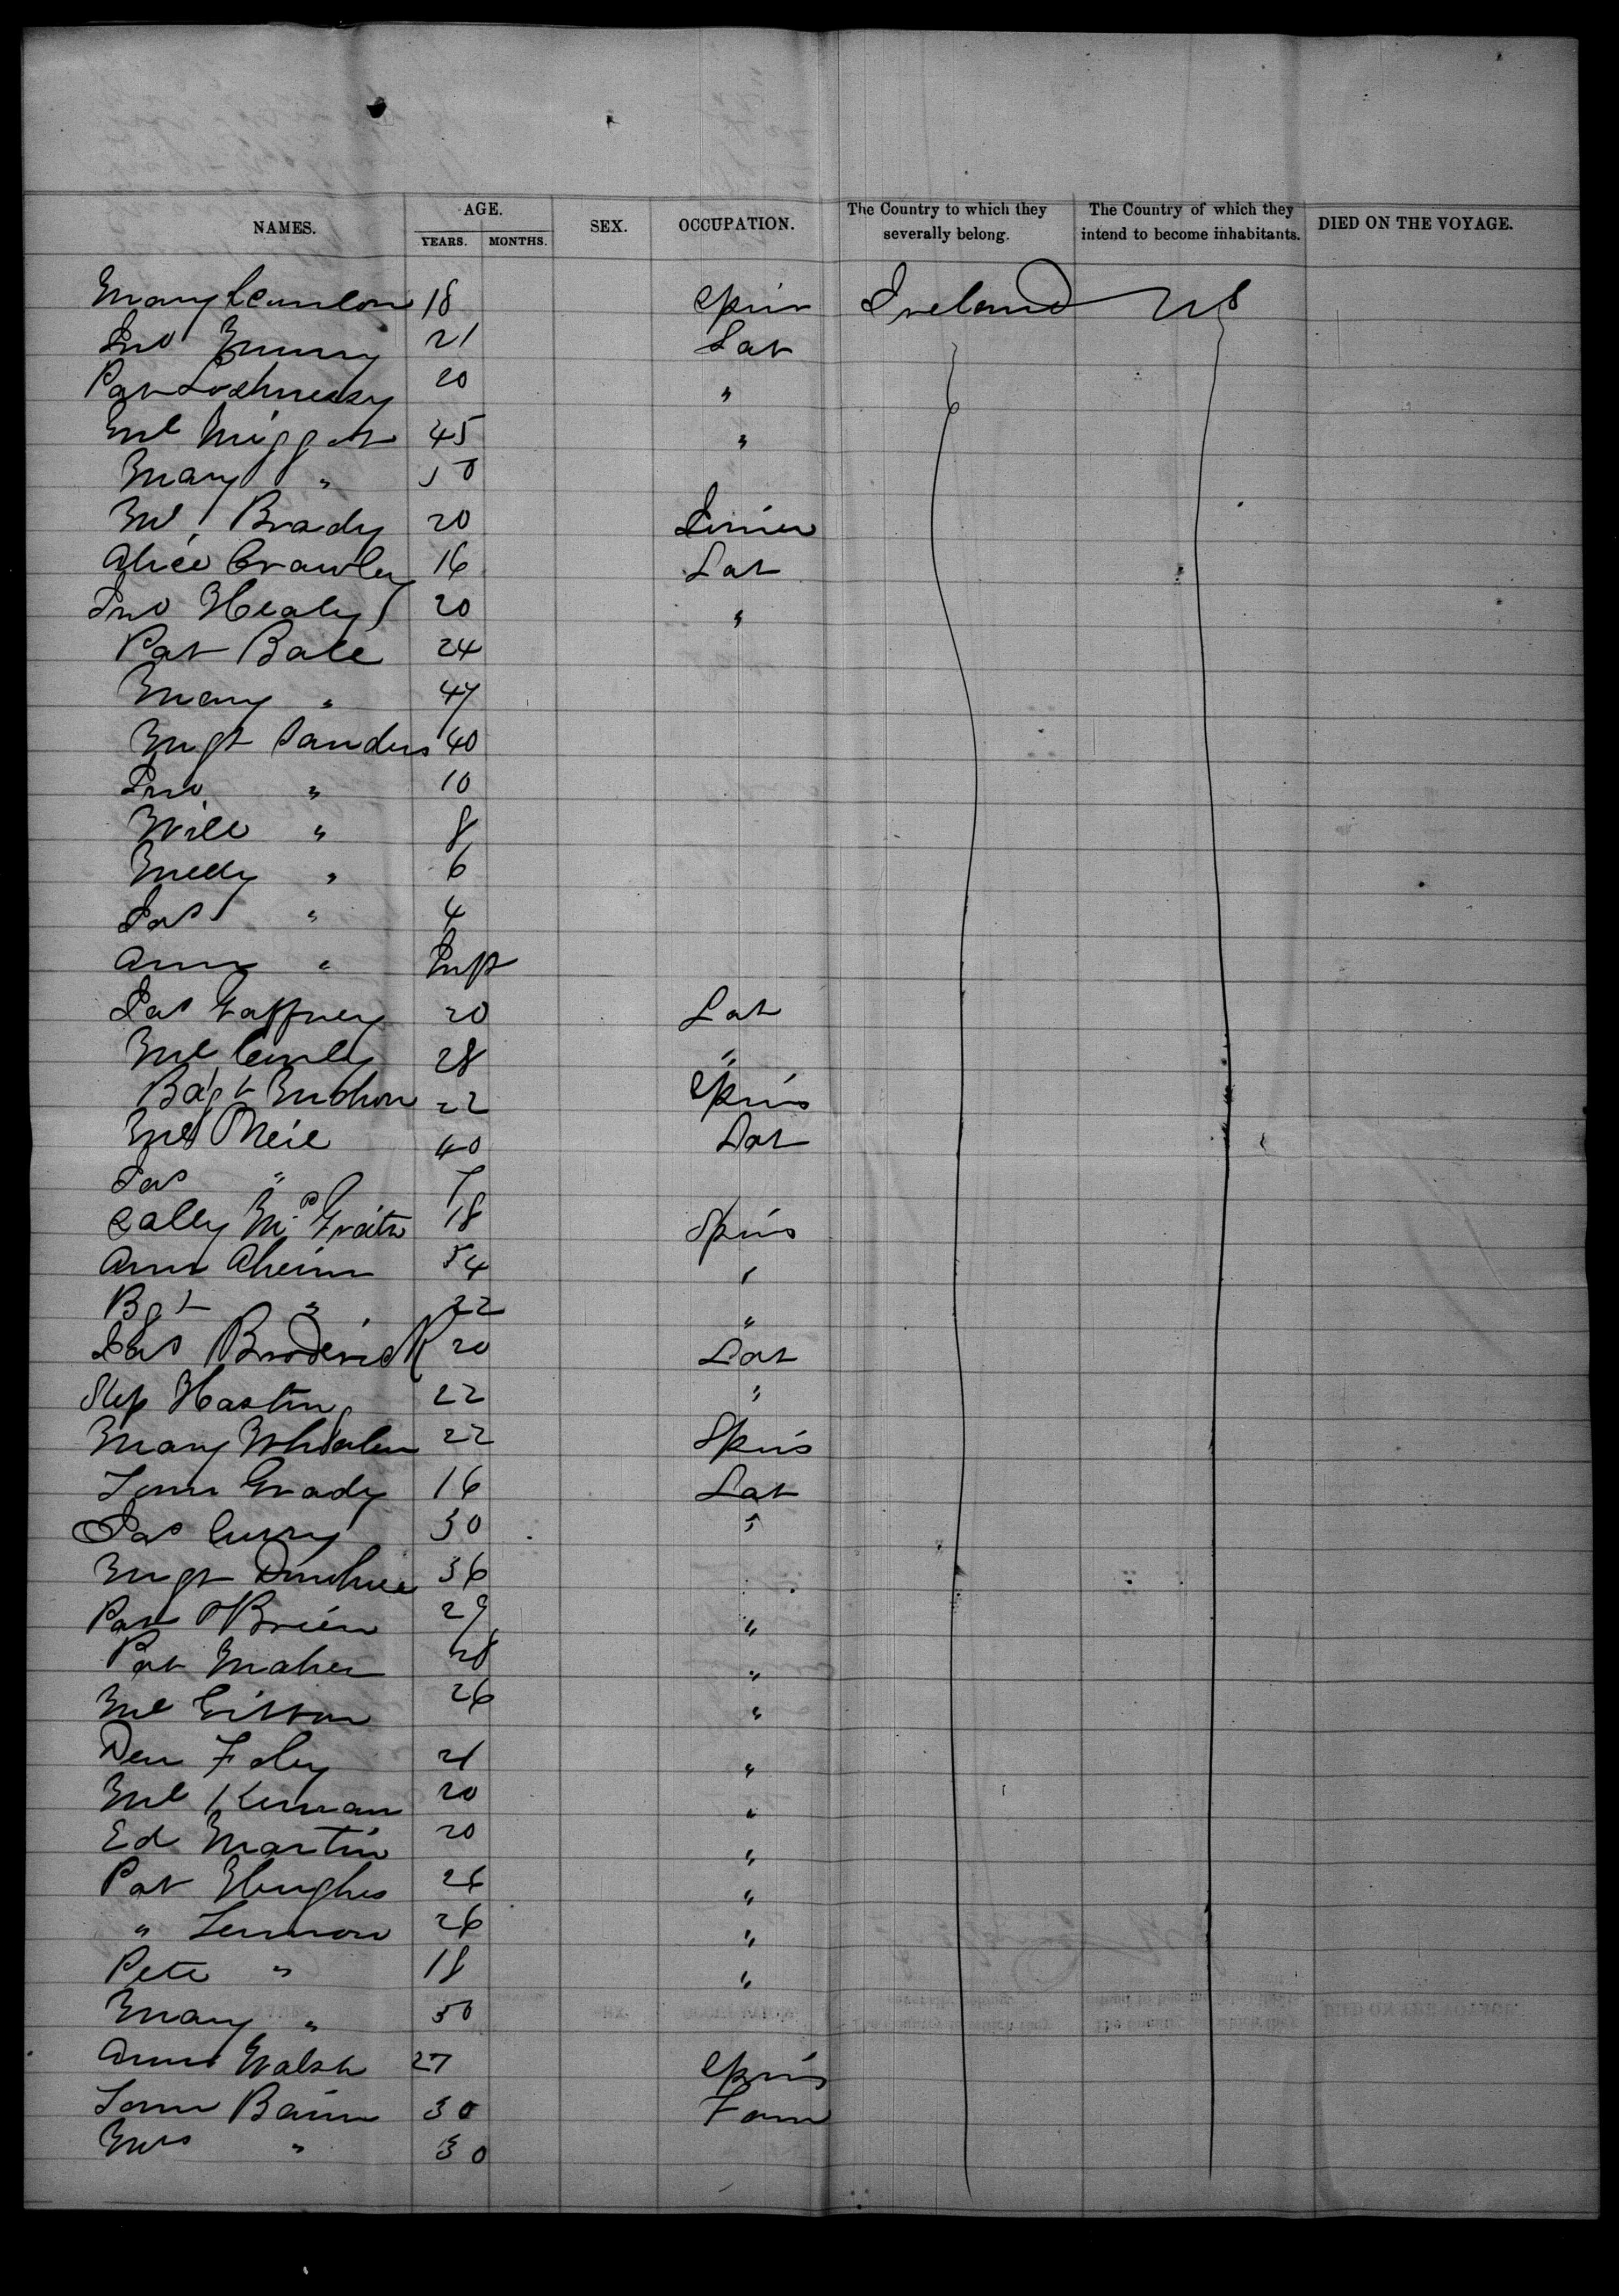 NAMES. AGE. YEARS. MONTHS. SEX. OCCUPATION. The Country to which they severally belong. The Country of which they intend to become inhabitants. DIED ON THE VOYAGE.
Mary 18 Spin Ireland US
Jno 21 Lab
Pat 20 "
Ml 45 "
Mary " 50
Ml Brady 20
Alice Crawley 16 Lab
Jno Healy 20 "
Pat Bale 24
Mary " 47
Mgt Sanders 40
Jno " 10
Will " 8
" 6
Jas " 4
Ann " Inft
Jas Gaffney 20 Lab
Ml 28 "
22 Spins
O'Neil 40 Lab
Jas " 7
Sally McGrath 18 Spins
Ann Aheirn 54 "
Bgt " 22 "
Jas Broderick 20 Lab
Step Hasting 22 "
Mary Whealen 22 Spins
Tom Grady 16 Lab
Jas Curry 30 "
Mgt 36
Pat O'Brien 29 "
Pat Maher 28 "
Ml 26 "
Den Foley 21 "
Ml Kernan 20 "
Ed Martin 20 "
Pat Hughes 26 "
" Lennon 26 "
Pete " 18 "
Mary " 50
Ann Walsh 27 Spins
Tom 30 Farm
Mrs " 30